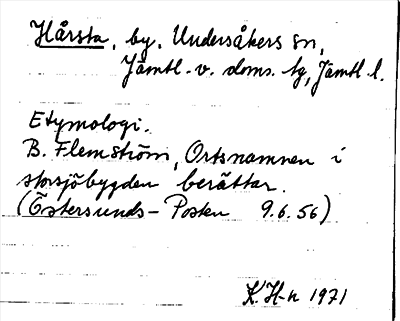 Hårsta, by. Undersåkers sn,
Jämtl. v. doms. tg, Jämtl. l.
Etymologi.
B. Flemström, Ortsnamnen i
storsjöbygden berättar.
(Östersunds-Posten 9.6.56)
K. H-n 1971